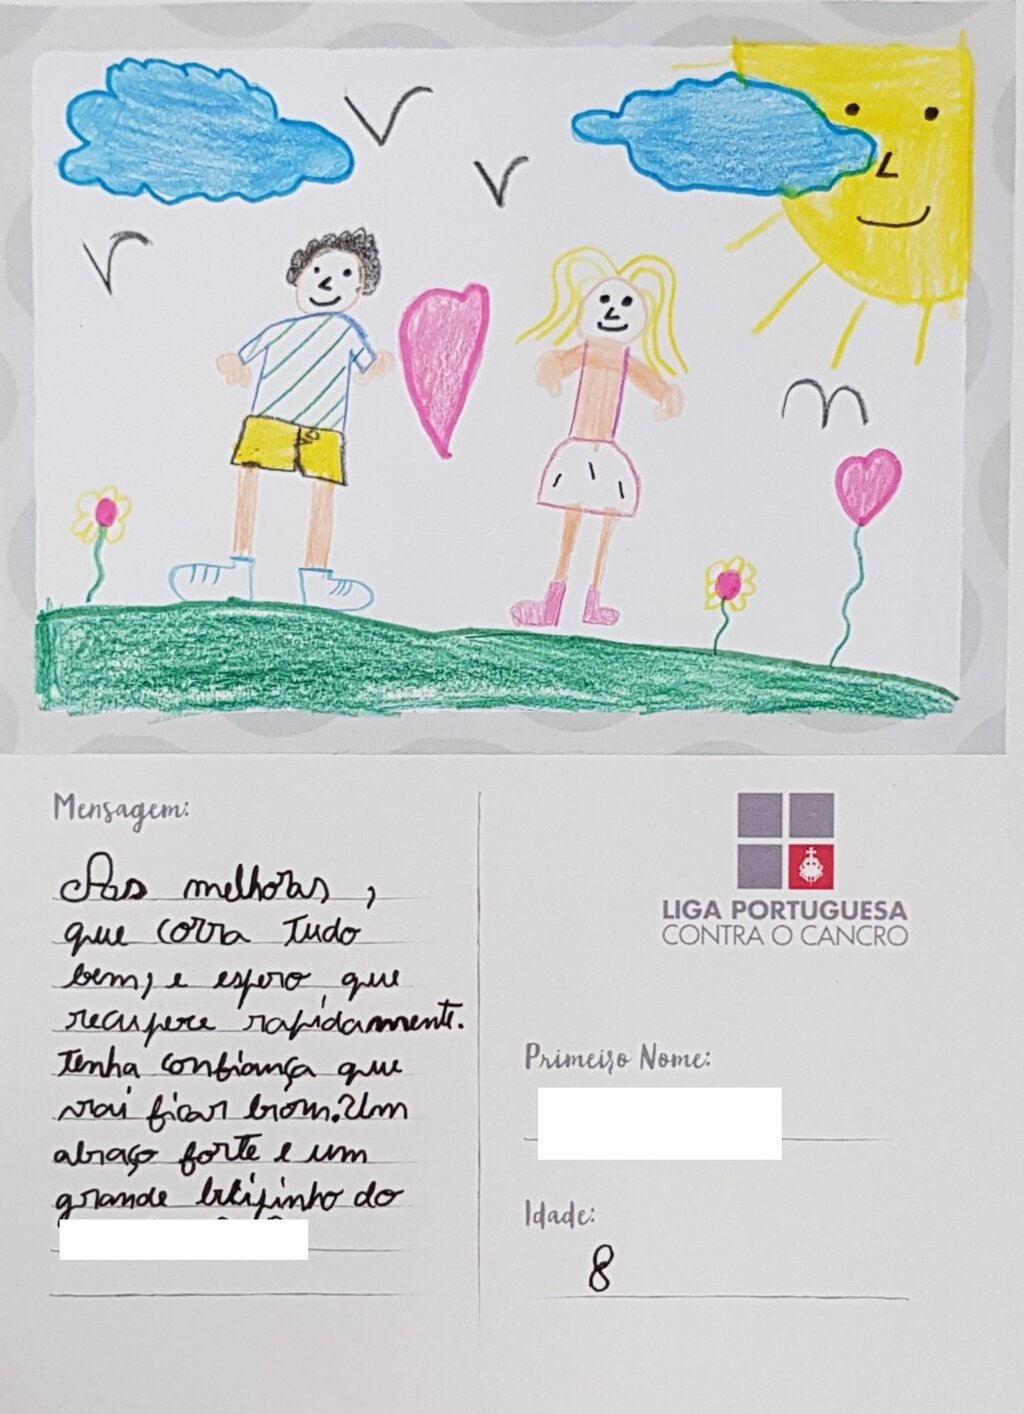 Mensagem:
As melhoras,
que corra tudo
bem, e espero que
recupere rapidamente.
Tenha confiança que
vai ficar bom. Um
abraço forte e um
grande beijinho do
LIGA PORTUGUESA
CONTRA O CANCRO
Primeiro Nome:
Idade:
8